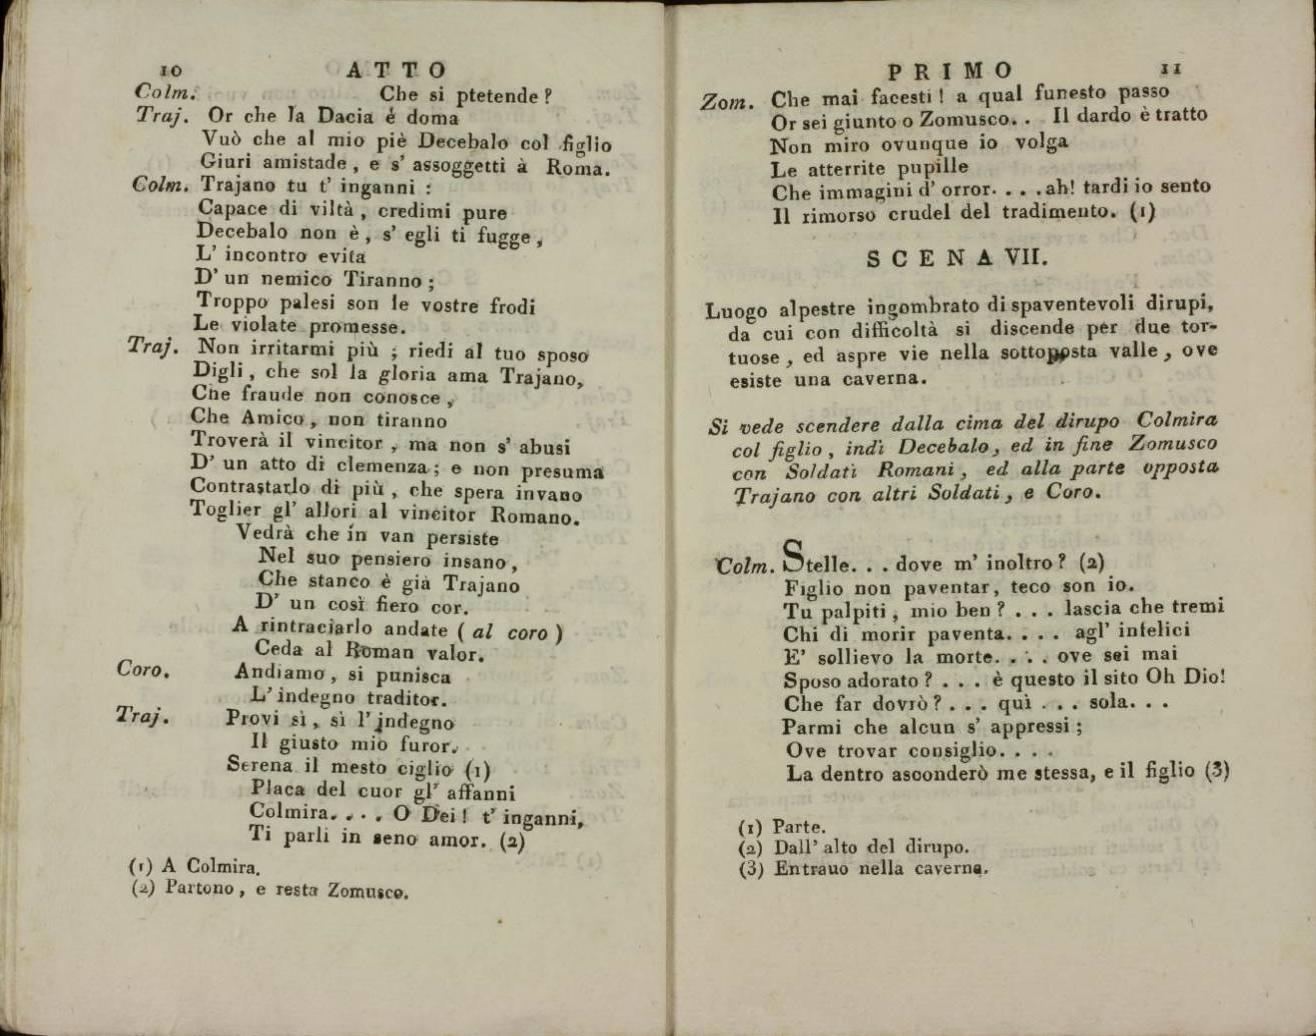 10 ATTO
Colm. Che si ptetende?
Traj. Or che la Dacia é doma
Vuò che al mio piè Decebalo col figlio
Giuri amistade, e s' assoggetti à Roma.
Colm. Trajano tu t' inganni :
Capace di viltà, credimi pure
Decebalo non è, s' egli ti fugge,
L' incontro evita
D' un nemico Tiranno;
Troppo palesi son le vostre frodi
Le violate promesse.
Traj. Non irritarmi più ; riedi al tuo sposo
Digli, che sol la gloria ama Trajano,
Che fraude non conosce,
Che Amico, non tiranno
Troverà il vincitor, ma non s' abusi
D' un atto di clemenza; e non presuma
Contrastarlo di più, che spera invano
Toglier gl' allori al vincitor Romano.
Vedrà che in van persiste
Nel suo pensiero insano,
Che stanco è già Trajano
D' un così fiero cor.
A rintraciarlo andate ( al coro )
Ceda al Roman valor.
Coro. Andiamo, si punisca
L' indegno traditor.
Traj. Provi sì, sì l' indegno
Il giusto mio furor.
Serena il mesto ciglio (1)
Placa del cuor gl' affanni
Colmira. . . . O Dei! t' inganni,
Ti parli in seno amor. (2)
(1) A Colmira.
(2) Partono, e resta Zomusco.
PRIMO 11
Zom. Che mai facesti! a qual funesto passo
Or sei giunto o Zomusco. . Il dardo è tratto
Non miro ovunque io volga
Le atterrite pupille
Che immagini d' orror. . . .ah! tardi io sento
Il rimorso crudel del tradimento. (1)
SCENA VII.
Luogo alpestre ingombrato di spaventevoli dirupi,
da cui con difficoltà si discende per due tor-
tuose, ed aspre vie nella sottoposta valle, ove
esiste una caverna.
Si vede scendere dalla cima del dirupo Colmira
col figlio, indi Decebalo, ed in fine Zomusco
con Soldati Romani, ed alla parte opposta
Trajano con altri Soldati, e Coro.
Colm. Stelle. . . dove m' inoltro? (2)
Figlio non paventar, teco son io.
Tu palpiti, mio ben? . . . lascia che tremi
Chi di morir paventa. . . . agl' infelici
E' sollievo la morte. . . . ove sei mai
Sposo adorato? . . . è questo il sito Oh Dio!
Che far dovrò? . . . quì . . . sola. . .
Parmi che alcun s' appressi;
Ove trovar consiglio. . . .
La dentro asconderò me stessa, e il figlio (3)
(1) Parte.
(2) Dall' alto del dirupo.
(3) Entrauo nella caverna.